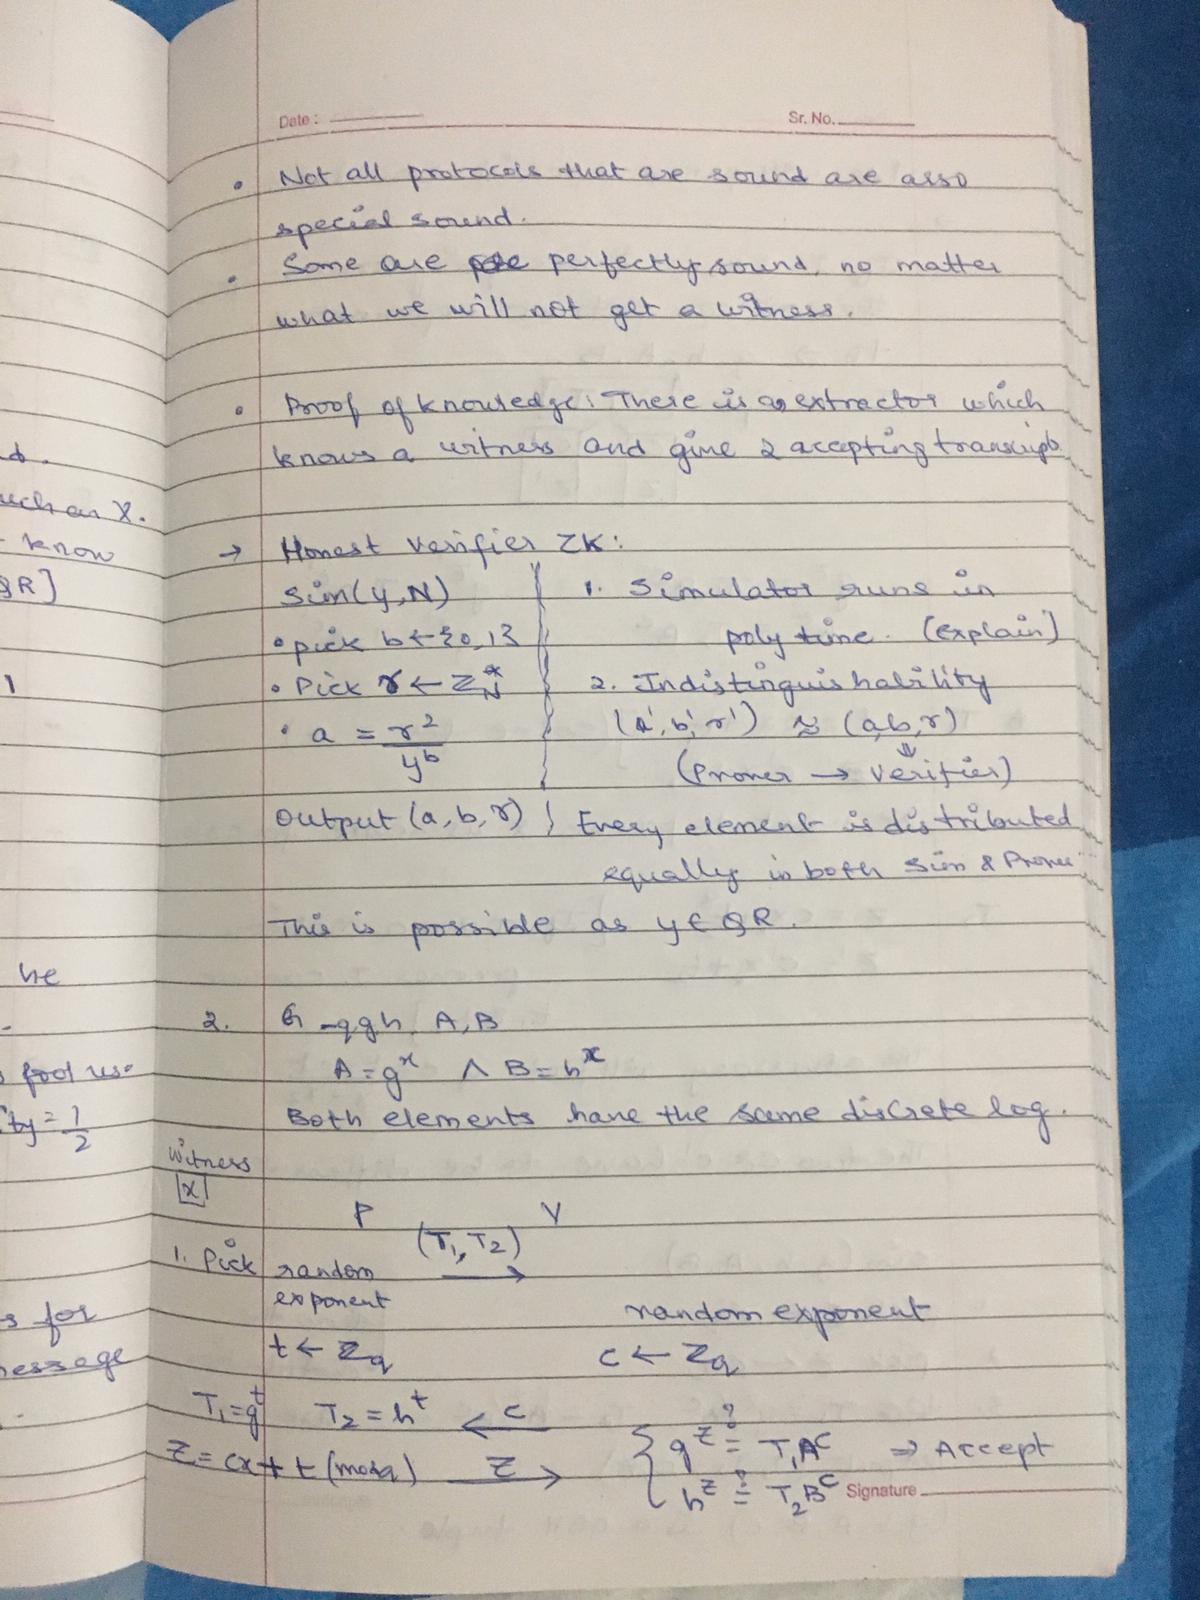 Date :
Sr. No.
• Not all protocols that are sound are also
special sound.
• Some are perfectly sound, no matter
what we will not get a witness.
• Proof of knowledge: There is an extractor which
knows a witness and give 2 accepting transcripts
→ Honest Verifier ZK:
Sim(y,N)
• pick b ← {0,1}
• Pick r ← Z*N
• a = r²/y^b
Output (a, b, r)
1. Simulator runs in
poly time. (explain)
2. Indistinguishability
(a', b', r') ≈ (a,b,r)
⇓
(Prover → Verifier)
Every element is distributed
equally in both Sim & Prover
This is possible as y ∈ QR.
2. G - q g h, A, B
A = g^x ∧ B = h^x
Both elements have the same discrete log.
witness
x
P V
(T₁, T₂)
→
1. Pick random
exponent
random exponent
t ← Zq c ← Zq
T₁ = g^t T₂ = h^t ← c
z = cx + t (mod q) z →
{ g^z ≟ T₁A^c ⇒ Accept
h^z ≟ T₂B^c
Signature
d.
such an X.
know
QR]
1
he
fool us
ity = 1/2
s for
message